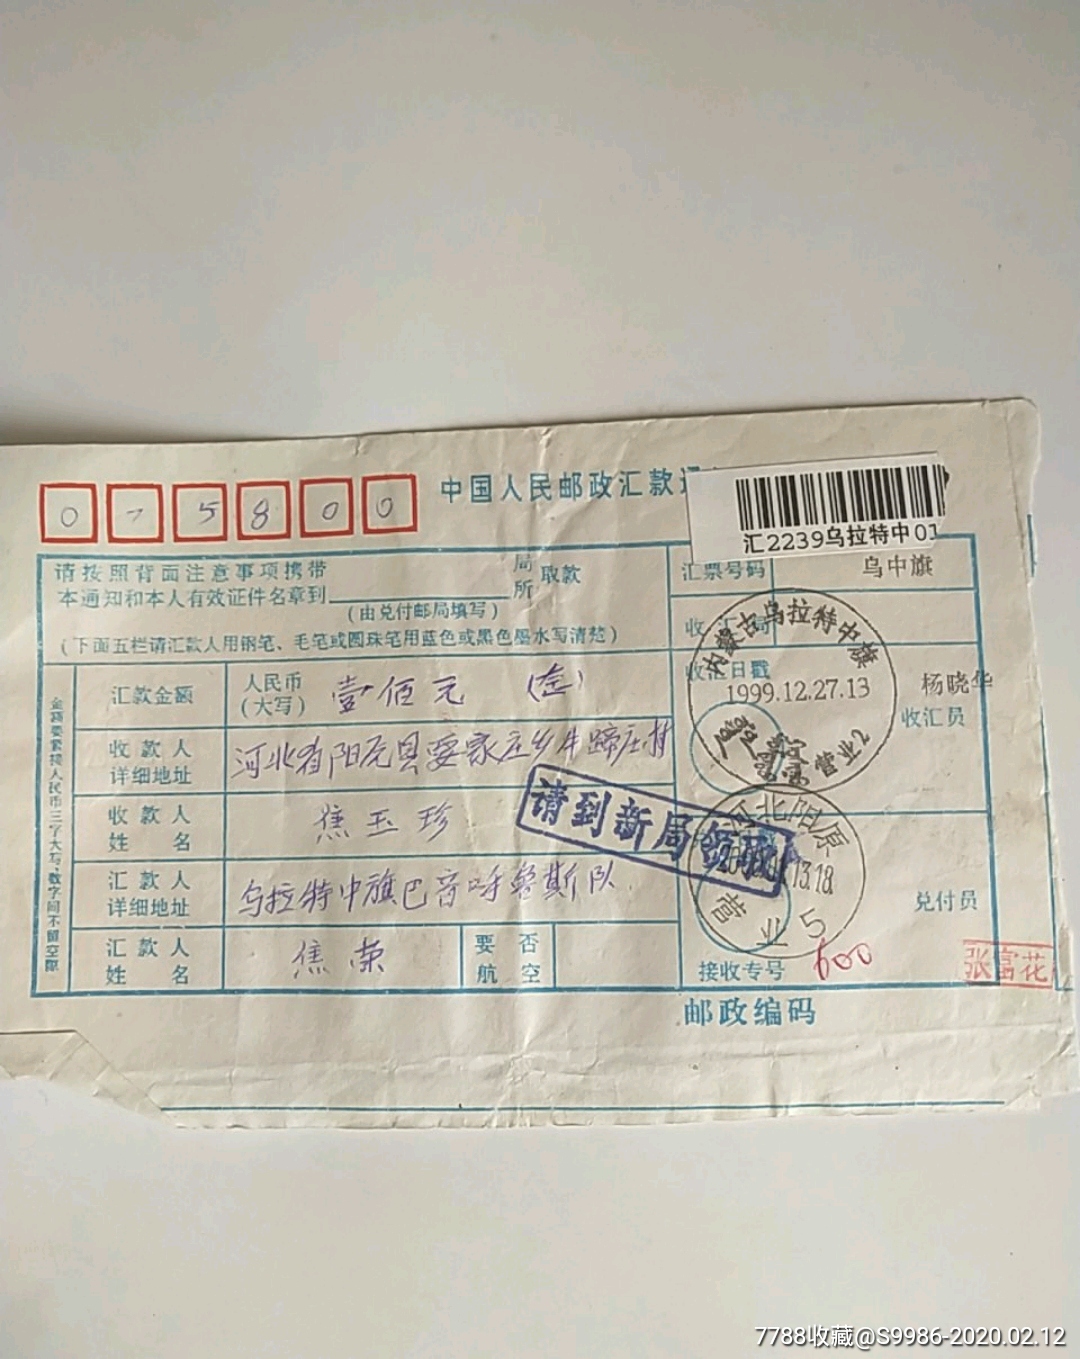 0 7 5 8 0 0
中国人民邮政汇款通
汇2239乌拉特中01
请按照背面注意事项携带
本通知和本人有效证件名章到 局所 取款
(由兑付邮局填写)
(下面五栏请汇款人用钢笔、毛笔或圆珠笔用蓝色或黑色墨水写清楚)
汇票号码 乌中旗
收汇局
内蒙古乌拉特中旗
收汇日戳
1999.12.27.13
营业2
杨晓华
收汇员
金额要紧接人民币三字大写,数字间不留空隙
汇款金额 人民币(大写) 壹佰元
收款人详细地址 河北省阳原县要家庄乡牛蹄庄村
收款人姓名 焦玉珍
请到新局领取
汇款人详细地址 乌拉特中旗巴音呼鲁斯队
汇款人姓名 焦荣 要否航空
河北阳原
13.18
营业5
兑付员
接收专号 600
张富花
邮政编码
7788收藏@S9986-2020.02.12